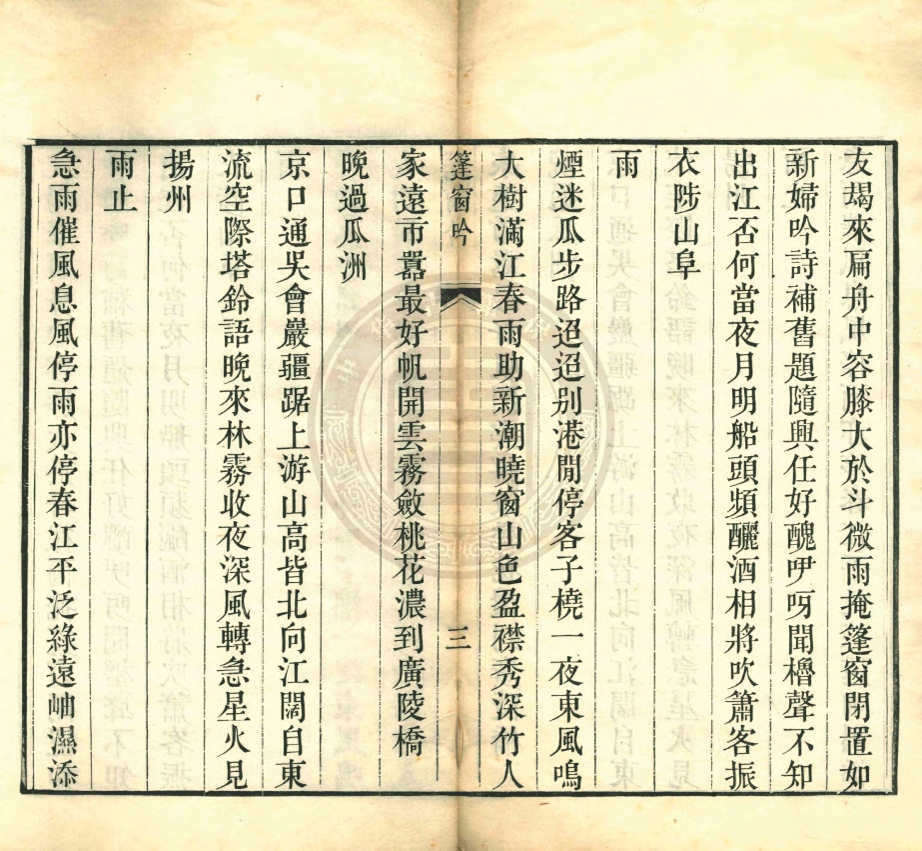 友朅來扁舟中容膝大於斗微雨掩篷窗閉置如
新婦吟詩補舊題隨興任好醜咿呀聞櫓聲不知
出江否何當夜月明船頭頻釃酒相將吹簫客振
衣陟山阜
雨
煙迷瓜步路迢迢别港閒停客子橈一夜東風鳴
大樹滿江春雨助新潮曉窗山色盈襟秀深竹人
篷窗吟
三
家遠市囂最好帆開雲霧斂桃花濃到廣陵橋
晚過瓜洲
京口通吳會巖疆踞上游山高皆北向江闊自東
流空際塔鈴語晚來林霧收夜深風轉急星火見
揚州
雨止
急雨催風息風停雨亦停春江平泛綠遠岫濕添